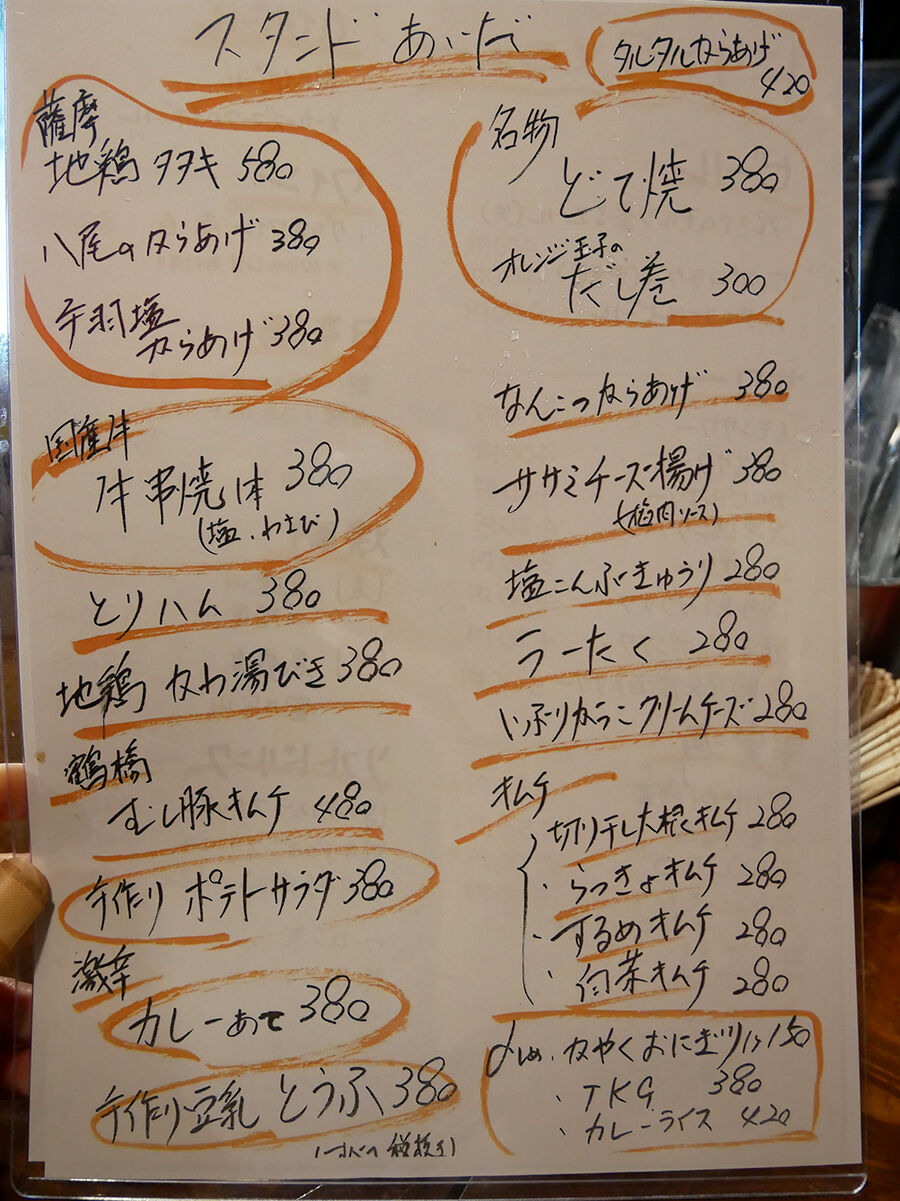 スタンド あいだ
タルタルからあげ
420
薩摩
地鶏 タタキ 580
八尾のからあげ 380
手羽塩
からあげ 380
名物
どて焼 380
オレンジ玉子の
だし巻 300
国産牛
牛串焼1本 380
(塩、わさび)
とりハム 380
地鶏 かわ湯びき 380
鶴橋
むし豚キムチ 480
手作り ポテトサラダ 380
激辛
カレーあて 380
手作り豆乳 とうふ 380
なんこつからあげ 380
ササミチーズ揚げ 380
(梅肉ソース)
塩こんぶきゅうり 280
ラーたく 280
いぶりがっこクリームチーズ 280
キムチ
切り干し大根キムチ 280
・らっきょキムチ 280
・するめキムチ 280
・白菜キムチ 280
〆しめ、かやくおにぎり1ケ150
・TKG 380
・カレーライス 420
税抜き)